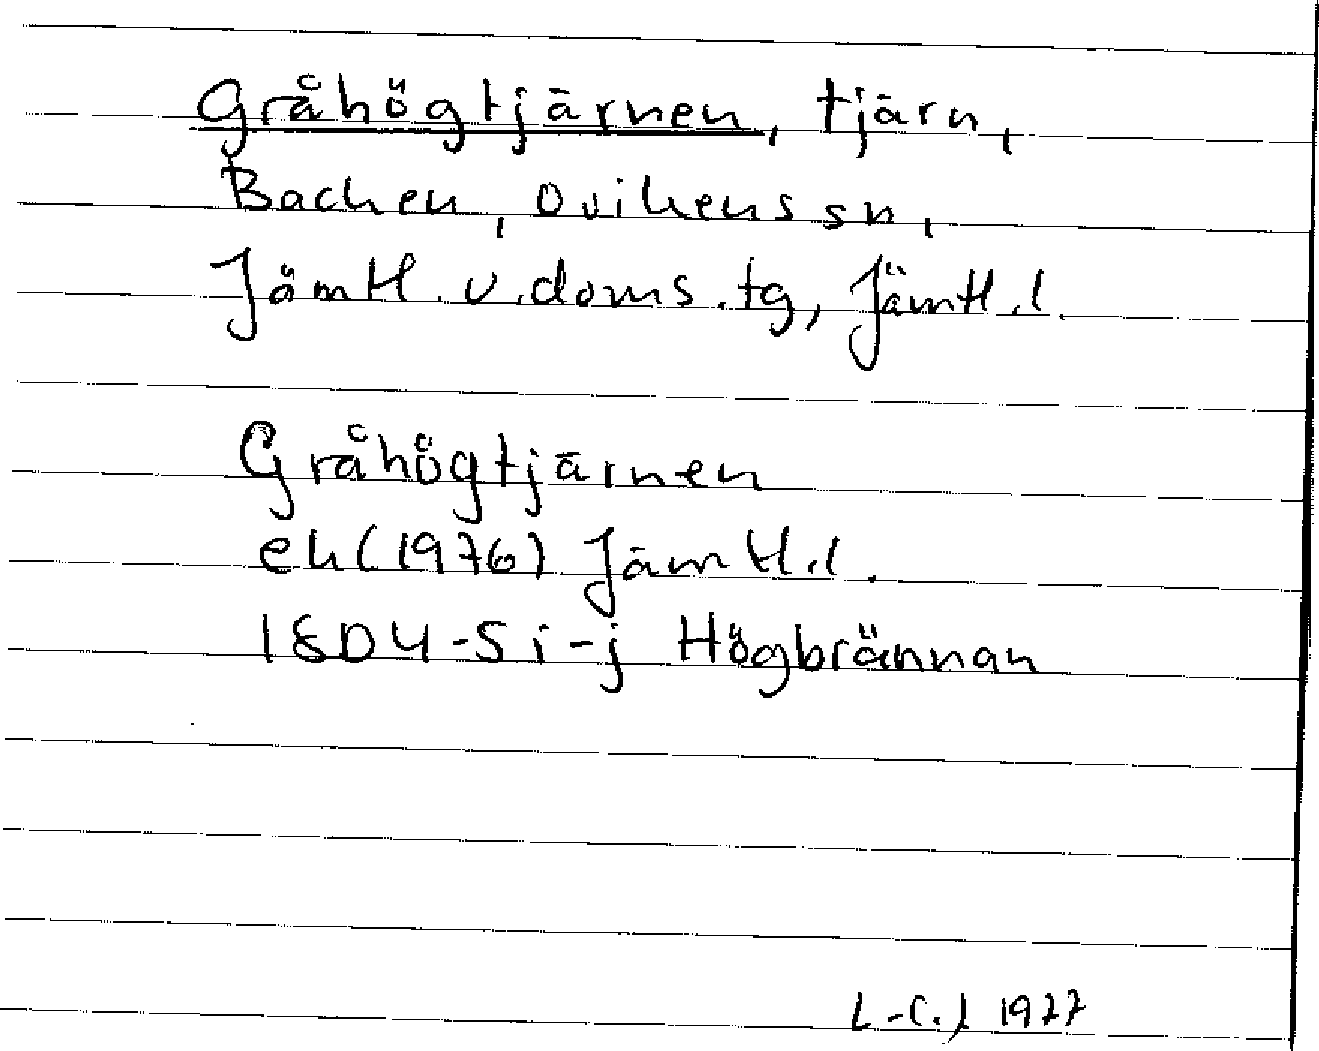 Gråhögtjärnen, tjärn,
Backen, Ovikens sn,
Jämtl. v. doms. tg, Jämtl. l.
Gråhögtjärnen
ek (1976) Jämtl. l.
18D 4-5 i-j Högbrännan
L-C. J 1977